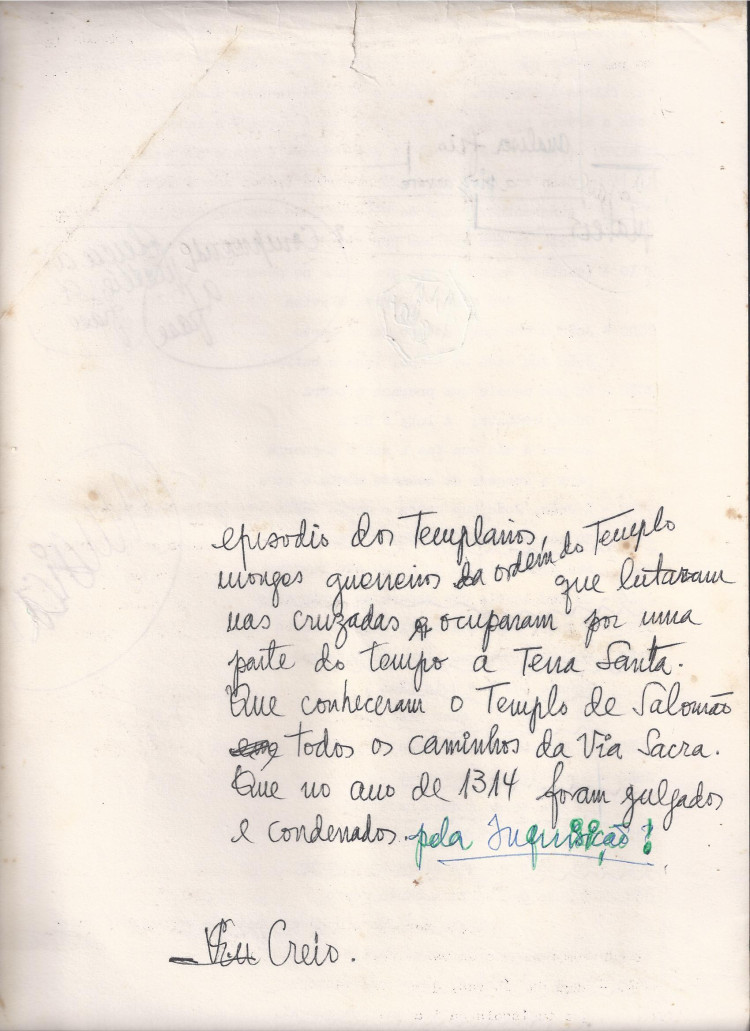 episodio dos Templarios,
monges guerreiros da ordem do Templo
que lutaram
nas cruzadas e ocuparam por uma
parte do tempo a Terra Santa.
Que conheceram o Templo de Salomão
e todos os caminhos da Via Sacra.
Que no ano de 1314 foram julgados
e condenados. pela Inquisição!
Creio.